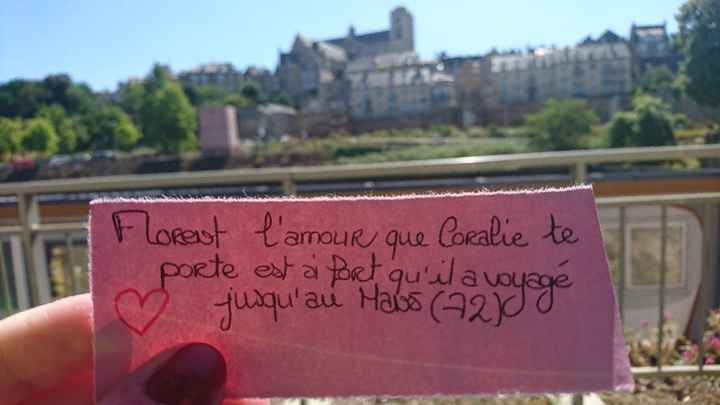 Florent l'amour que Coralie te
porte est si fort qu'il a voyagé
jusqu'au Mans (72)